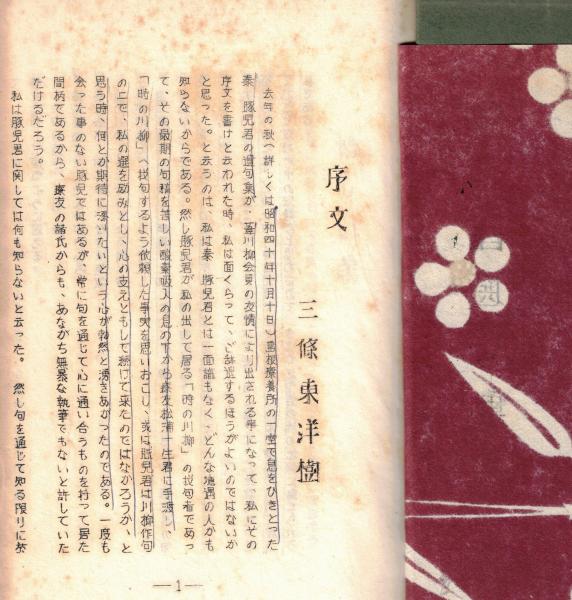 序文
三條東洋樹
去年の秋（詳しくは昭和四十年十月十日）豊根療養所の一室で息をひきとった
泰　豚児君の遺句集が、葦川柳会員の友情により出される事になって、私にその
序文を書けと云われた時、私は面くらって、ご辞退するほうがよいのではないか
と思った。と云うのは、私は泰　豚児君とは一面識もなく、どんな境遇の人かも
知らないからである。然し豚児君が私の出して居る「時の川柳」の投句者であっ
て、その最期の句稿を苦しい酸素吸入の息の下から療友松浦十生君に手
「時の川柳」へ投句するよう依頼した事実を思いおこし、或は豚児君は川柳作句
の上で、私の選を励みとし、心の支えともして続けて来たのではなかろうか、と
思う時、何とか期待に添いたいという心が勃然と湧きあがったのである。一度も
会った事のない豚児ではあるが、常に句を通じて心に通い合うものを持って居た
間柄であるから、療友の諸氏からも、あながち無暴な執筆でもないと許していた
だけるだろう。
私は豚児君に関しては何も知らないと云った。　然し句を通じて知る限りに於
—1—